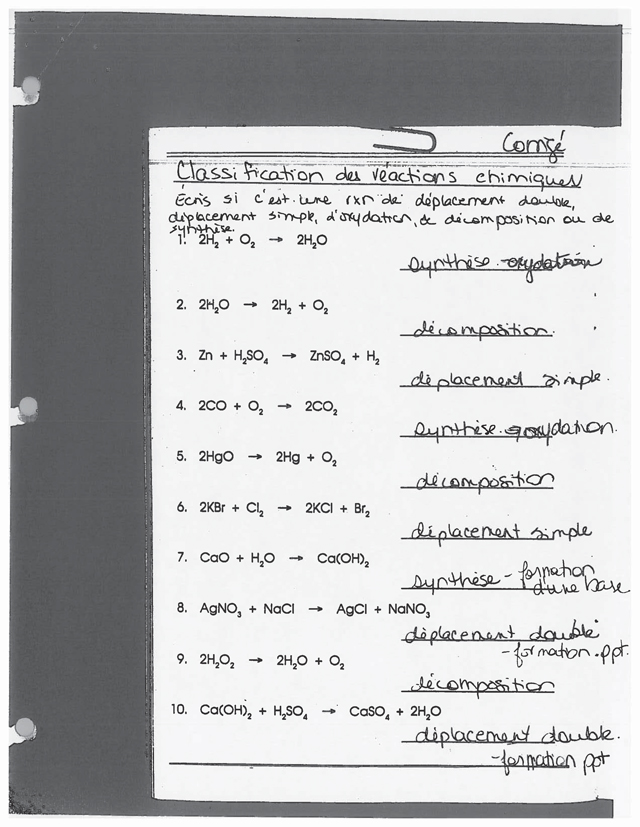 Corrigé
Classification des réactions chimiques
Écris si c'est une rxn de déplacement double,
déplacement simple, d'oxydation, de décomposition ou de
synthèse.
1. 2H₂ + O₂ → 2H₂O
synthèse - oxydation
2. 2H₂O → 2H₂ + O₂
décomposition.
3. Zn + H₂SO₄ → ZnSO₄ + H₂
déplacement simple.
4. 2CO + O₂ → 2CO₂
synthèse - oxydation.
5. 2HgO → 2Hg + O₂
décomposition
6. 2KBr + Cl₂ → 2KCl + Br₂
déplacement simple
7. CaO + H₂O → Ca(OH)₂
synthèse - formation
d'une base
8. AgNO₃ + NaCl → AgCl + NaNO₃
déplacement double
- formation ppt.
9. 2H₂O₂ → 2H₂O + O₂
décomposition
10. Ca(OH)₂ + H₂SO₄ → CaSO₄ + 2H₂O
déplacement double.
- formation ppt